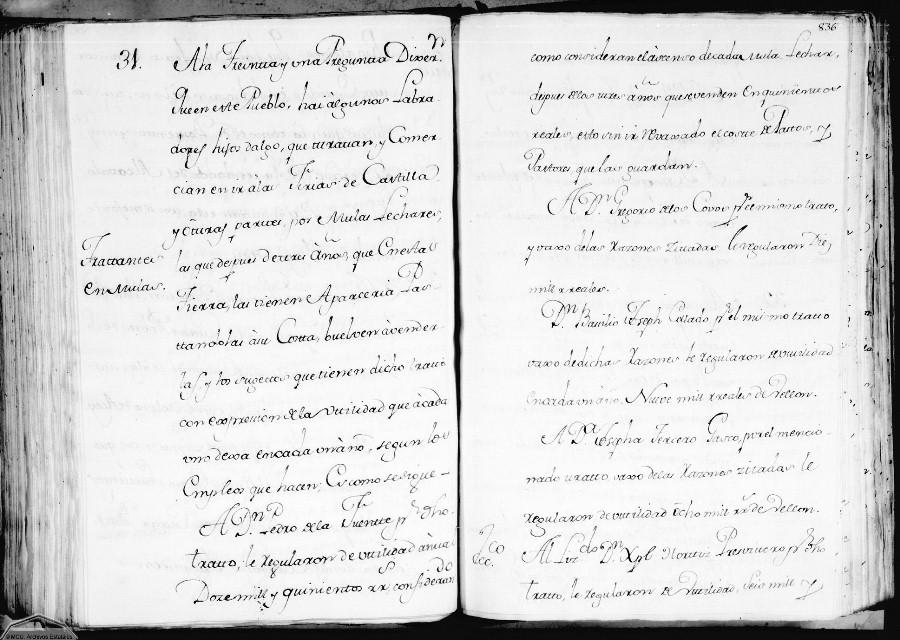 31. Ala Treinta y una Pregunta Dixer.n
Que en este Pueblo, hai algunos Labra
dores hijos dalgo, que tratan, y Comer
cian en ir alas Ferias de Castilla
y otras partes, por Mulas Lechares,
Trattantes
en Mulas.
las que despues de tres años, que en esta
Tierra, las tienen Aparceria, Pas
ttandolas à su Costa, buelven à vender
las, y los sugettos que tienen dicho tratto
con expresion de la Utilidad que à cada
uno dexa en cada un año, segun los
Empleos que hacen, Es como se sigue-
A Dn Pedro de la Fuente pr dho
tratto, le regularon de utilidad annual
Doze mill y quinientos rrs, considerando
836
como consideran el àszenso de cada Mula Lechar,
despues de los tres años que se venden en quinientos
reales, esto sin ir rebaxado el coste de Pastos, y
Pastores que las guardan.
A Dn Gregorio de los Covos pr el mismo tratto,
y vaxo de las Razones Zitadas le regularon Diez
mil rreales.
Dn Basilio Joseph Collado pr el mismo tratto
vaxo de dichas Razones le regularon de utilidad
en cada un año, Nueve mil rreales de vellon.
A Da Josepha Tercero Gasco, por el mencio-
nado tratto vaxo de las Razones zitadas le
regularon de utilidad ocho mil rrs de Vellon.
Eco
Al Lizdo Dn Xpl Hortiz Presvitero pr dho
tratto, le regularon de Utilidad, Seis mill y
©MCD. Archivos Estatales